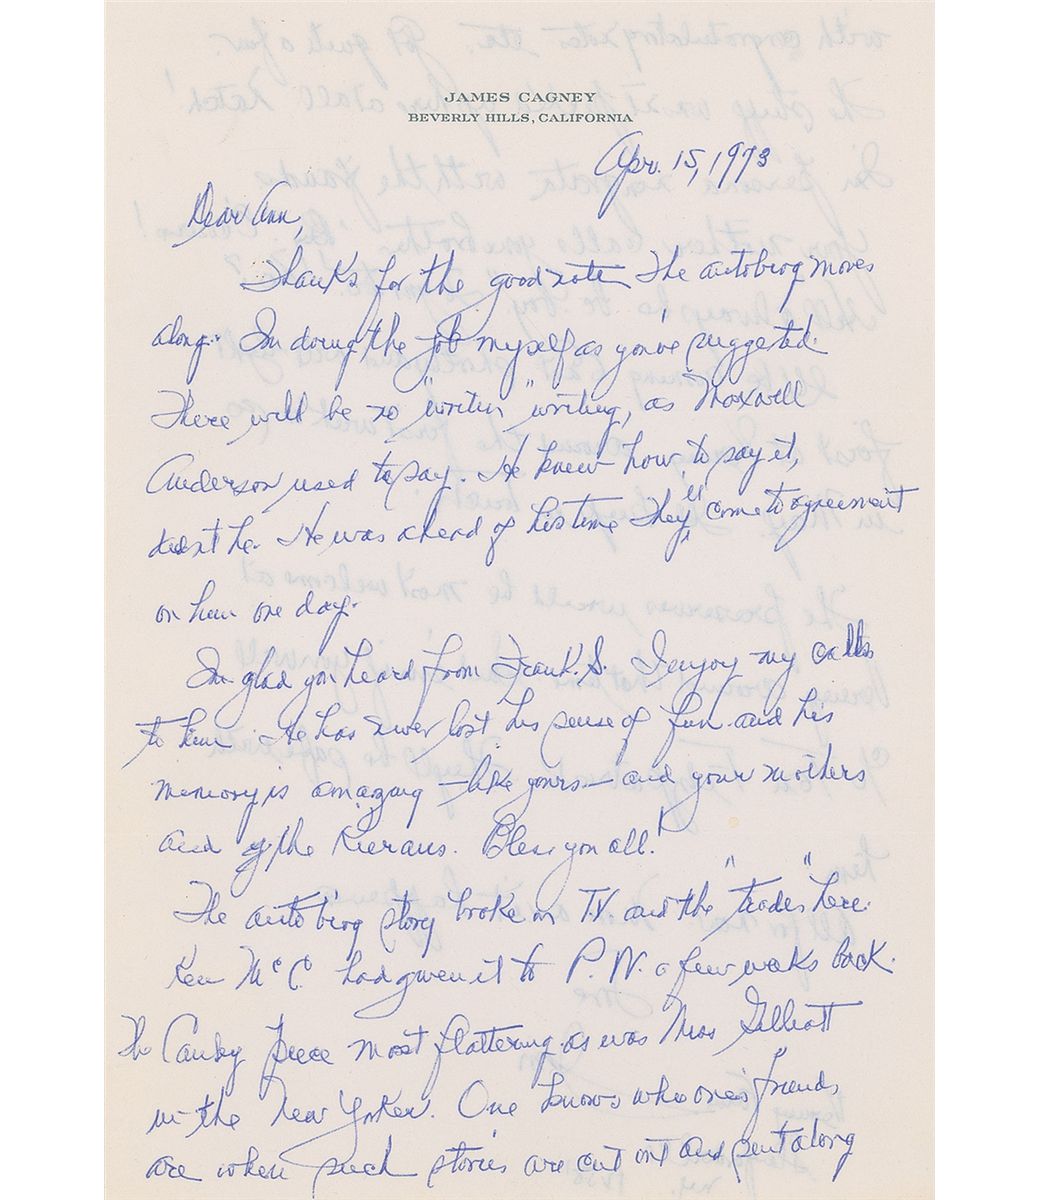 JAMES CAGNEY
BEVERLY HILLS, CALIFORNIA
Apr. 15, 1973
Dear Ann,
Thanks for the good note. The autobiog moves
along. I'm doing the job myself as you've suggested.
There will be no "writer" writing, as Maxwell
Anderson used to say. He knew how to say it,
didn't he. He was ahead of his time. They'll come to agreement
on him one day.
I'm glad you heard from Frank S. I enjoy my calls
to him. He has never lost his sense of fun and his
memory is amazing – like yours – and your mothers
and of the Kierans. Bless you all.
The autobiog story broke on T.V. and the "trades" here.
Ken McC. had given it to P.W. a few weeks back.
The Canby piece most flattering as was Miss Gilliatt
in the New Yorker. One knows who one's friends
are when such stories are cut out and sent along